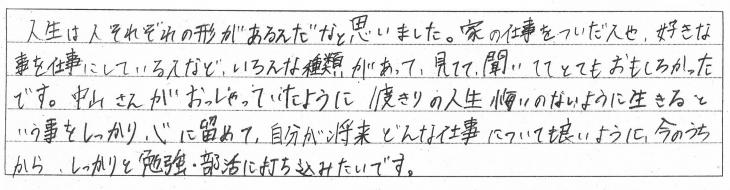 人生は人それぞれの形があるんだなと思いました。家の仕事をついだ人や、好きな
事を仕事にしている人など、いろんな種類があって、見てて、聞いててとてもおもしろかった
です。中山さんがおっしゃっていたように1度きりの人生悔いのないように生きると
いう事をしっかり、心に留めて、自分が将来どんな仕事についても良いように、今のうち
から、しっかりと勉強・部活に打ち込みたいです。